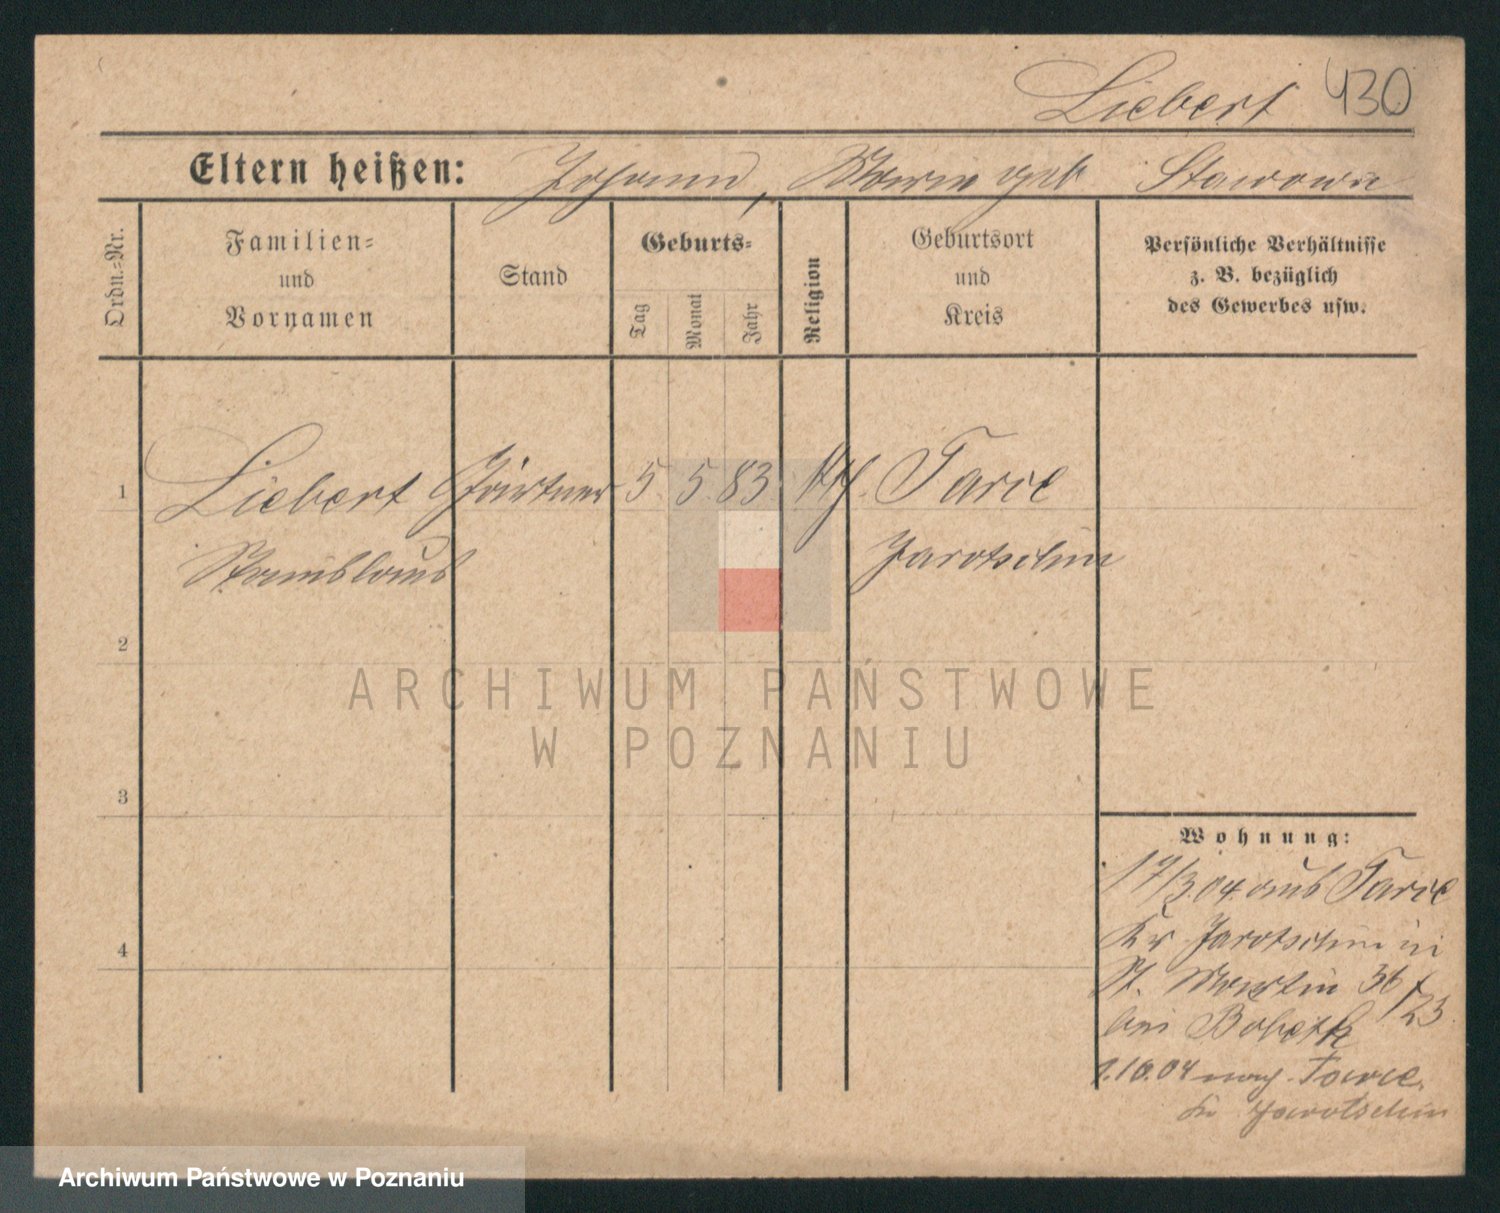 Liebert 430
Eltern heißen: Johann, Maria geb
Ordn.-Nr.
Familien-
und
Vornamen
Stand
Geburts-
Tag
Monat
Jahr
Religion
Geburtsort
und
Kreis
Persönliche Verhältnisse
z. B. bezüglich
des Gewerbes usw.
1 Liebert Gärtner 5 5 83 kth. Tarce
Stanislaus Jarotschin
2
3
4
ARCHIWUM PAŃSTWOWE
W POZNANIU
Wohnung:
17/3.04 aus Tarce
Kr Jarotschin in
St. Martin 36/23
bei
1.10.04 nach Tarce
Kr Jarotschin
Archiwum Państwowe w Poznaniu